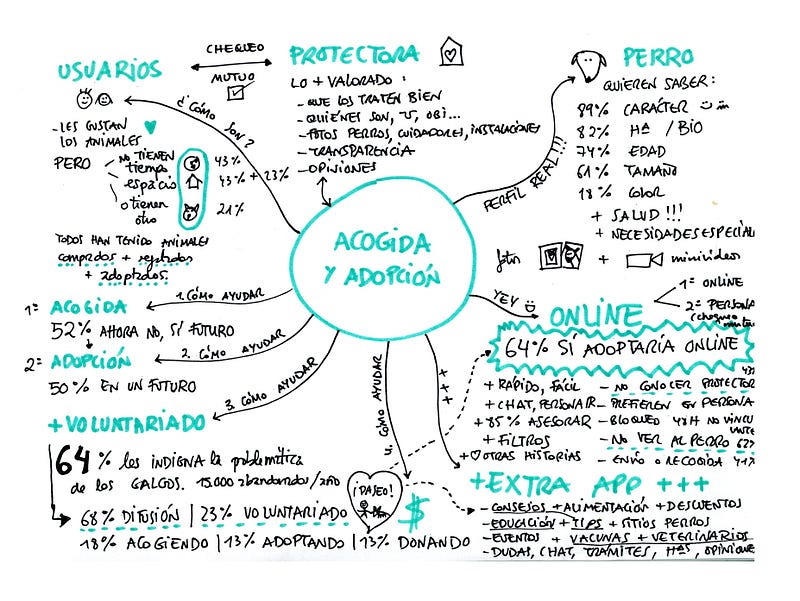 USUARIOS
CHEQUEO
MUTUO
PROTECTORA
PERRO
¿CÓMO SON?
- LES GUSTAN
LOS ANIMALES
PERO
NO TIENEN
tiempo 43%
espacio 43% + 23%
o tienen
otro 21%
TODOS HAN TENIDO ANIMALES
comprados + regalados
+ adoptados.
LO + VALORADO:
- QUE LOS TRATEN BIEN
- QUIÉNES SON,
- FOTOS PERROS, CUIDADORES, INSTALACIONES
- TRANSPARENCIA
- OPINIONES
PERFIL REAL!!!
QUIEREN SABER:
89% CARÁCTER
82% Hª / BIO
74% EDAD
61% TAMAÑO
18% COLOR
+ SALUD !!!
+ NECESIDADES ESPECIAL
fotos + minivideos
ACOGIDA
Y ADOPCIÓN
1. CÓMO AYUDAR
1º ACOGIDA
52% AHORA NO, SÍ FUTURO
2. CÓMO AYUDAR
2º ADOPCIÓN
50% EN UN FUTURO
3. CÓMO AYUDAR
+ VOLUNTARIADO
64% les INDIGNA la problemática
de los GALGOS. 15.000 abandonados/año
68% DIFUSIÓN | 23% VOLUNTARIADO
18% ACOGIENDO | 13% ADOPTANDO | 13% DONANDO
4. CÓMO AYUDAR
¡PASEO!
$
+++
YEY
ONLINE
1º ONLINE
2º PERSONA
64% SÍ ADOPTARÍA ONLINE
+ RÁPIDO, FÁCIL
+ CHAT, PERSONA R.
+ 85% ASESORAR
+ FILTROS
+ OTRAS HISTORIAS
- NO CONOCER PROTECTOR
- PREFIEREN EN PERSONA
- BLOQUEO 48H NO VINCU
- NO VER AL PERRO 62%
- ENVÍO O RECOGIDA 41%
+ EXTRA APP +++
- CONSEJOS + ALIMENTACIÓN + DESCUENTOS
- EDUCACIÓN + TIPS + SITIOS PERROS
- EVENTOS + VACUNAS + VETERINARIOS
- DUDAS, CHAT, TRÁMITES, Hªs, OPINIONE